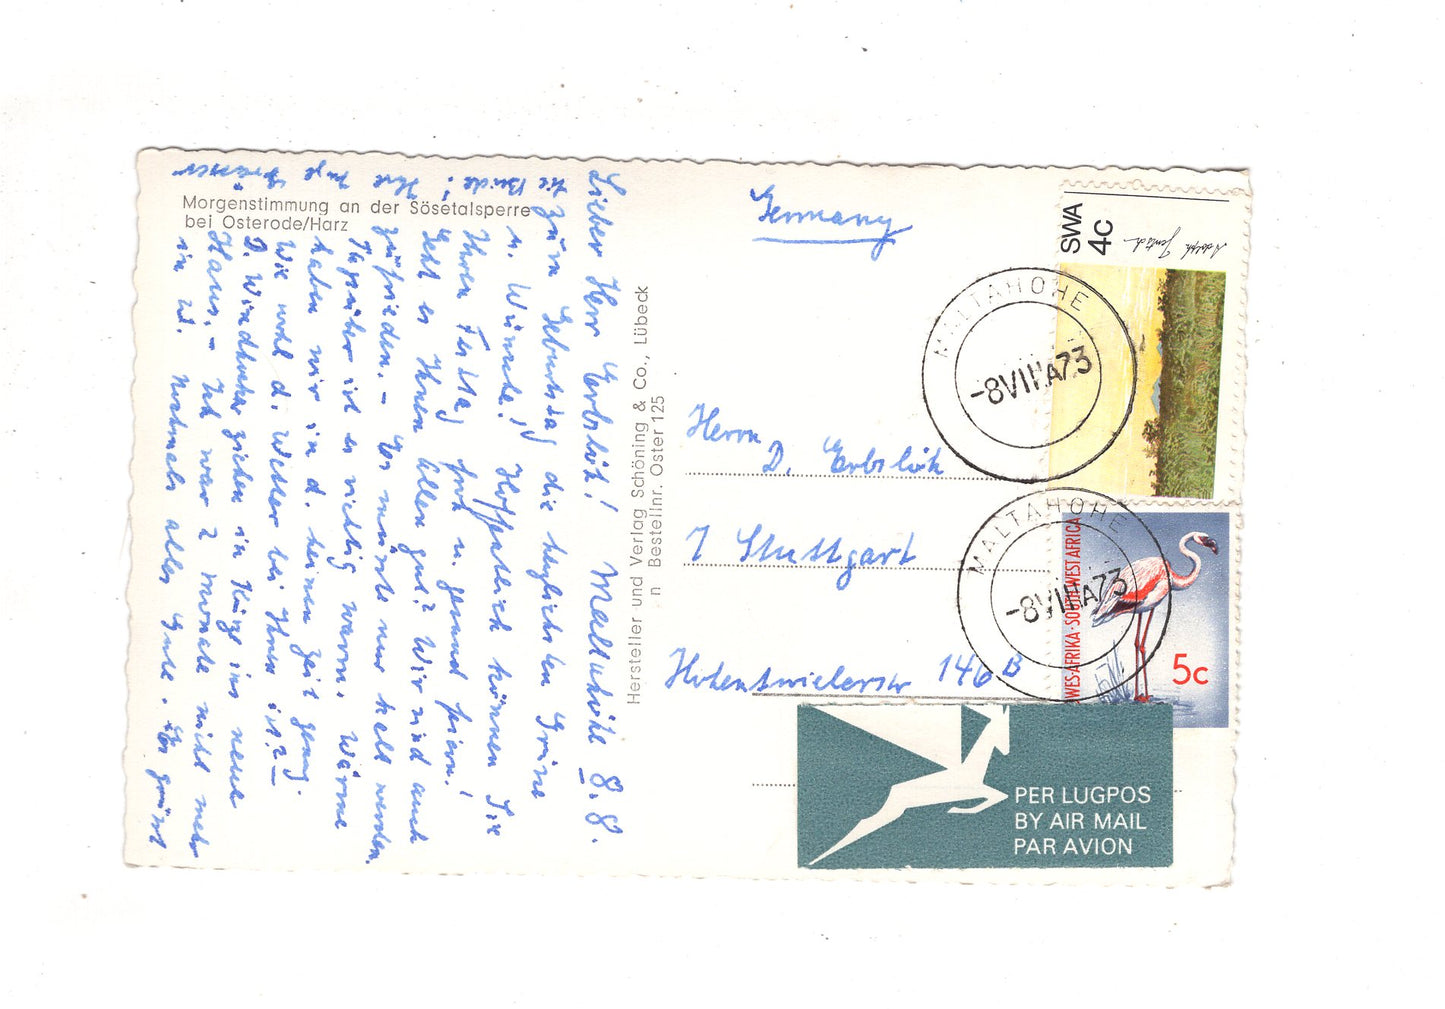 Morgenstimmung an der Sösetalsperre
bei Osterode/Harz
Lieber Herr Erbslöh! Maltahöhe 8.8.
Zum Geburtstag die herzlichsten Grüße
u. Wünsche! Hoffentlich können Sie
Ihren Festtag froh u. gesund feiern!
Geht es Ihnen allen gut? Wir sind auch
zufrieden. – Es müsste nur kalt werden.
Tagsüber ist es richtig warm. Wärme
haben wir in d. heissen Zeit genug.
Wie wohl d. Wetter bei Ihnen ist? –
D. Windhuker ziehen in Kürze ins neue
Haus. – Ich war 2 Monate nicht mehr
in W. Nochmals alles Gute. Es grüsst
Sie Beide! Ihre
Hersteller und Verlag Schöning & Co., Lübeck
n Bestellnr. Oster 125
Germany
Herrn
D. Erbslöh
7 Stuttgart
Hohentwielerstr 146 B
SWA
4c
Adolph Jentsch
MALTAHOHE
-8VIIIA73
MALTAHOHE
-8VIIIA73
WES-AFRIKA·SOUTH WEST AFRICA
5c
PER LUGPOS
BY AIR MAIL
PAR AVION